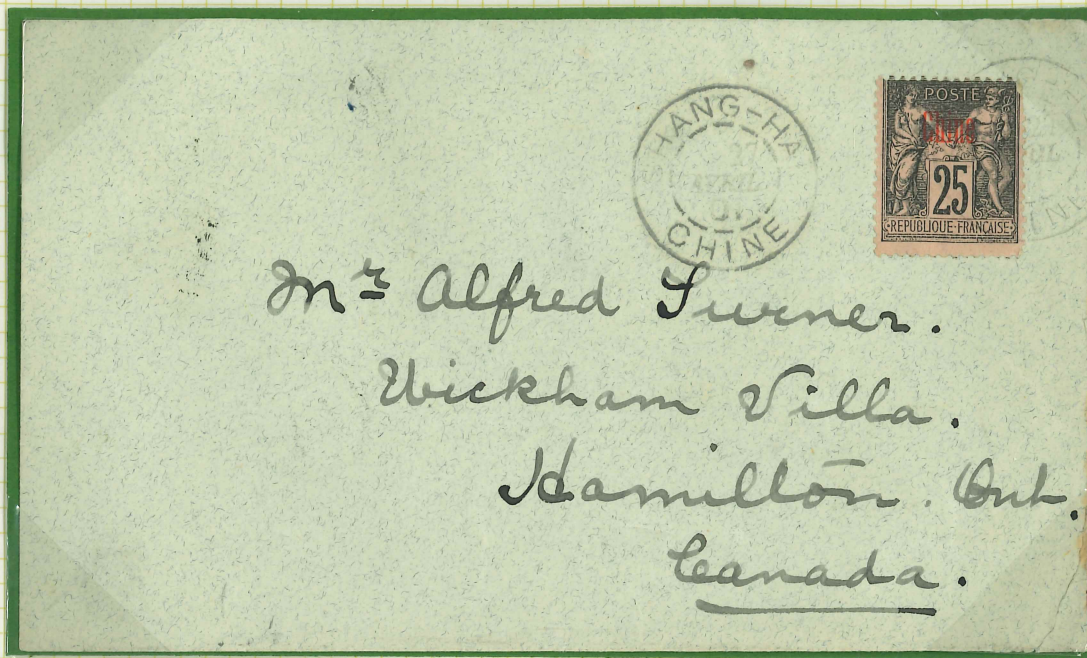 HANG-HA
27
AVRIL
CHINE
POSTE
Chine
25
REPUBLIQUE FRANÇAISE
Mr Alfred Turner.
Wickham Villa.
Hamilton. Ont.
Canada.